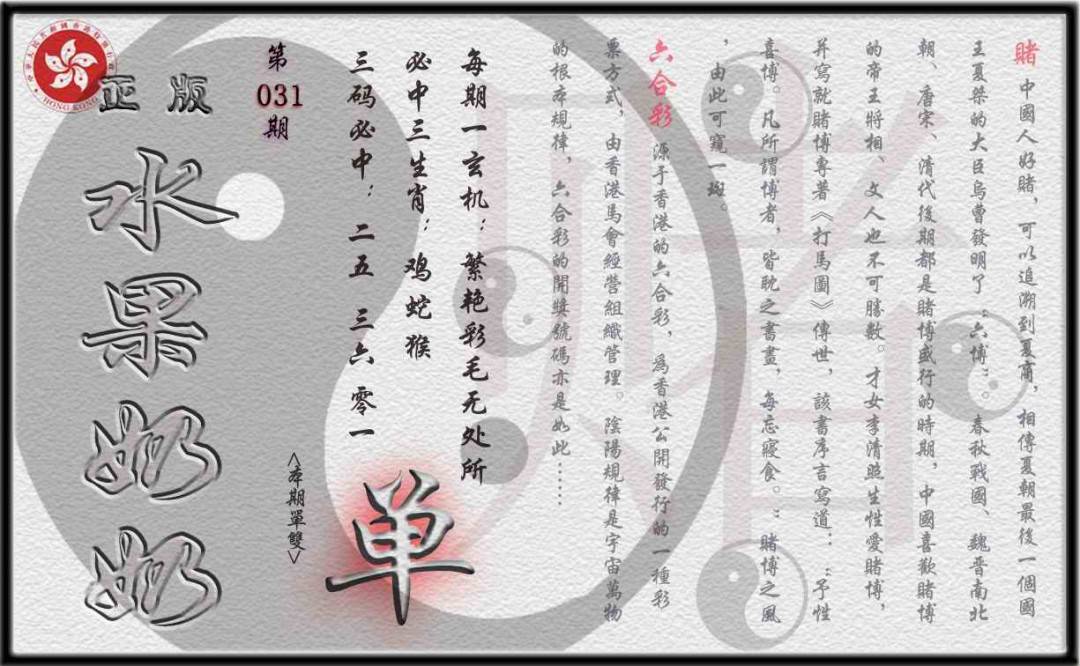 賭 中國人好賭，可以追溯到夏商，相傳夏朝最後一個國
王夏桀的大臣烏曹發明了“六博”。春秋戰國、魏晉南北
朝、唐宋、清代後期都是賭博盛行的時期，中國喜歡賭博
的帝王將相、文人也不可勝數。才女李清照生性愛賭博，
并寫就賭博專著《打馬圖》傳世，該書序言寫道：“予性
喜博。凡所謂博者，皆耽之書畫，每忘寢食。”賭博之風
，由此可窺一斑。
六合彩 源于香港的六合彩，爲香港公開發行的一種彩
票方式，由香港馬會經營組織管理。陰陽規律是宇宙萬物
的根本規律，六合彩的開獎號碼亦是如此……
每期一玄机：繁艳彩毛无处所
必中三生肖：鸡蛇猴
三码必中：二五 三六 零一
单
<本期單雙>
第
031
期
正版
水果奶奶
HONG KONG